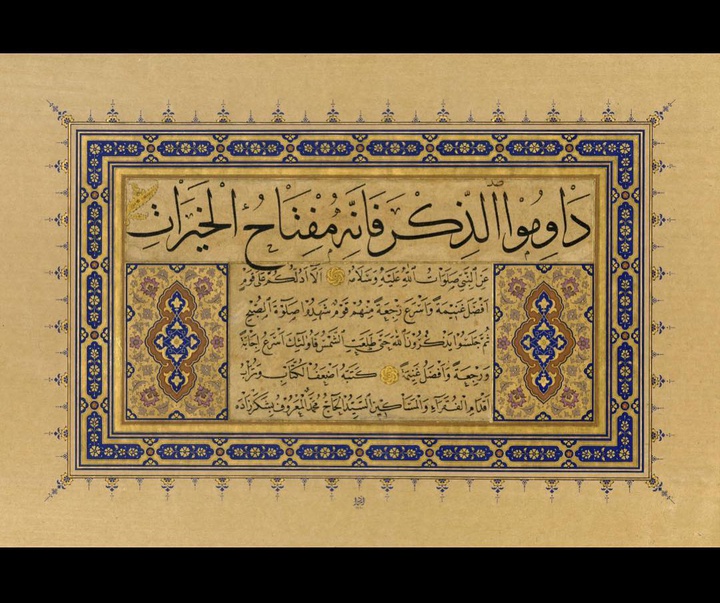 دَاوِمُوا الذِّكْرَ فَاِنَّهُ مِفْتَاحُ الْخَيْرَاتِ
عن النبي صلوات الله عليه وسلامه الا ادلكم على قوم
افضل غنيمة واسرع رجعة منهم قوم شهدوا صلوة الصبح
ثم جلسوا يذكرون الله حتى طلعت الشمس فاولئك اسرع
ورجعة وافضل غنيما كتبه اضعف الكتاب وتراب
اقدام الفقراء والمساكين السيد الحاج محمد المعروف بشكرزاده